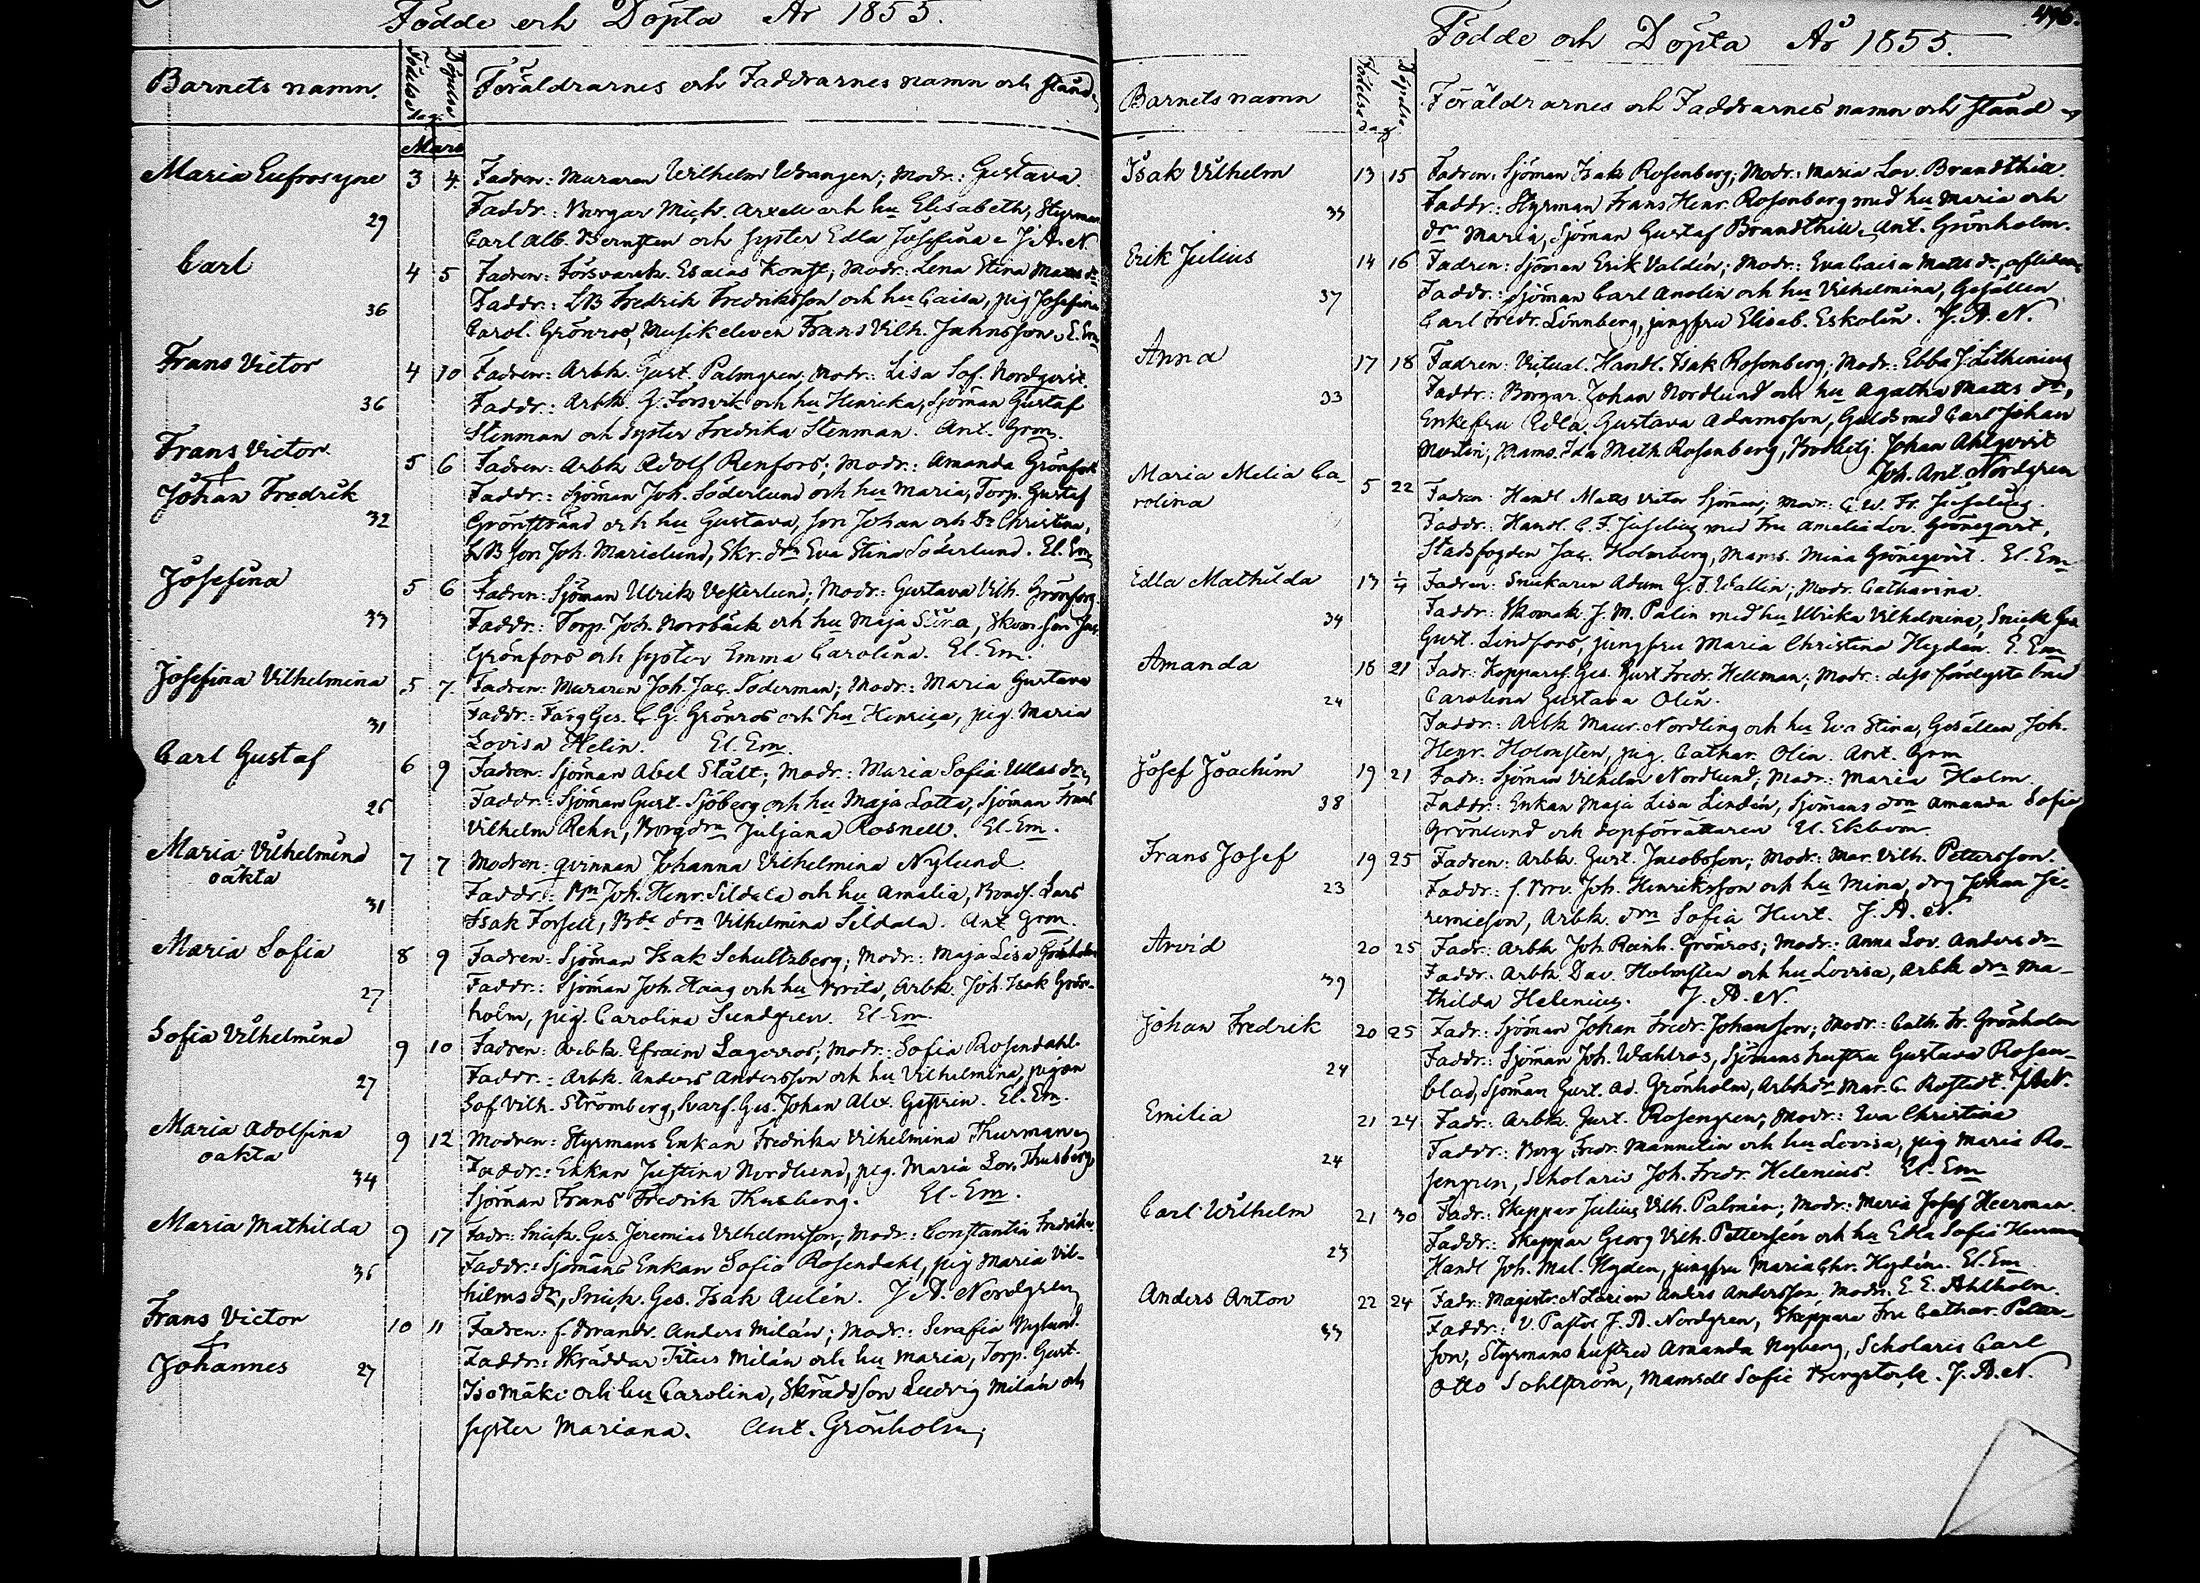 Födde och Döpta År 1855.
Barnets namn.
Födelsedag.
Döpelse
Föräldrarnes och Faddrarnes namn och stånd
Mars
Maria Eufrosyne 3 4. Fadren: Muraren Wilhelm Wrangen; Modr: Gustava.
Faddr: Borgar Mich. Axell och hu Elisabeth, Styrman
29
Carl Alb. Bernsten och syster Edla Josefina. J. A. N.
Carl 4 5 Fadren: Försvarsk. Esaias Konst; Modr: Lena Stina Matts dr
Faddr: LB Fredrik Fredriksson och hu Caisa, pig Josefina
36
Carol. Grönroos, Musikeleven Frans Vilh. Jahnsson. E. Em
Frans Victor 4 10 Fadren: Arbk. Gust. Palmgren, Modr: Lisa Sof. Nordqvist.
Faddr: Arbk. G. Forsvik och hu Henrika, Sjöman Gustaf
36
Stenman och syster Fredrika Stenman. Ant. Grm.
Frans Victor 5 6 Fadren: Arbk Adolf Renfors; Modr: Amanda Grönfors
†
Johan Fredrik Faddr: Sjöman Joh. Söderlund och hu Maria, Torp. Gustaf
32
Grönstrand och hu Gustava, son Johan och Dr Christina,
LB son Joh. Marielund, Skr. drn Eva Stina Söderlund. El. Em
Josefina 5 6 Fadren: Sjöman Ulrik Vesterlund; Modr: Gustava Vilh. Grönfors.
Faddr: Torp. Joh. Norrbäck och hu Maja Stina, Skom. son Jac.
33
Grönfors och syster Emma Carolina. El. Em.
Josefina Vilhelmina 5 7. Fadren: Muraren Joh. Jac. Söderman; Modr: Maria Gustava
Faddr: Färg Ges. C. G. Grönros och hu Henrica, pig. Maria
31
Lovisa Helin. El. Em.
Carl Gustaf 6 9 Fadren: Sjöman Abel Stålt; Modr: Maria Sofia Ullas dr,
Faddr: Sjöman Gust. Sjöberg och hu Maja Lotta, Sjöman Frans
26
Vilhelm Rehn, Borg drn Juljana Rosnell. El. Em.
Maria Vilhelmina 7 7 Modren: qvinnan Johanna Vilhelmina Nylund
oäkta
Faddr: Bn Joh. Henr. Sildala och hu Amalia, Bonds. Lars
31
Isak Forsell, Bde drn Vilhelmina Sildala. Ant Grm.
Maria Sofia 8 9 Fadren: Sjöman Isak Schultzberg; Modr: Maja Lisa Grönholm
Faddr: Sjöman Joh. Haag och hu Brita, Arbk. Joh. Isak Grön-
27
holm, pig. Carolina Sundgren. El. Em.
Sofia Vilhelmina 9 10 Fadren: Arbk. Efraim Lagerros; Modr: Sofia Rosendahl.
Faddr: Arbk. Anders Andersson och hu Vilhelmina, pigan
27
Sof. Vilh. Strömberg, Svarf. Ges. Johan Alex. Gestrin. El. Em.
Maria Adolfina 9 12 Modren: Styrmans Enkan Fredrika Vilhelmina Thurman,
oäkta
Faddr: Enkan Justina Nordlund, pig. Maria Lov. Thusberg,
34
Sjöman Frans Fredrik Thusberg. El. Em.
Maria Mathilda 9 17 Fadr: Snick. Ges. Jeremias Vilhelmsson; Modr: Constantia Fredrika
Faddr: Sjömans Enkan Sofia Rosendahl, pig Maria Vil-
36
hilms dr, Snick. Ges. Isak Aulén. J. A. Nordgren
Frans Victor 10 11 Fadren: f. Brandv. Anders Milán; Modr: Serafia Nylund.
†
Johannes Faddr: Skräddar Titus Milán och hu Maria, Torp. Gust.
27
Isomäki och hu Carolina, Skrädsson Ludvig Milán och
syster Mariana. Ant. Grönholm,
496.
Födde och Döpta År 1855.
Barnets namn
Födelse dag
Döpelse
Föräldrarnes och Faddrarnes namn och stånd
Isak Vilhelm 13 15 Fadren: Sjöman Isak Rosenberg; Modr: Maria Lov. Brandthill.
Faddr: Styrman Frans Henr. Rosenberg med hu Maria och
33
drn Maria, Sjöman Gustaf Brandthill. Ant. Grönholm.
Erik Julius 14 16 Fadren: Sjöman Erik Valdén; Modr: Eva Caisa Matts dr, afliden
Faddr: Sjöman Carl Anolin och hu Vilhelmina, Gesällen
37
Carl Fredr. Lönnberg, jungfru Elisab. Eskolin. J. A. N.
Anna 17 18 Fadren: Victual. Handl. Isak Rosenberg; Modr: Ebba J. Lithenius
Faddr: Borgar. Johan Nordlund och hu Agatha Matts dr,
33
Enkefru Edla Gustava Adamsson, Guldsmed Carl Johan
Martin, Mams. Ida Math. Rosenberg, Bokhålj. Johan Ahlqvist
Joh. Ant. Nordgren
Maria Melia Ca- 5 22 Fadren: Handl Matts Victor Sjöman; Modr: C. W. Fr. Juselius.
rolina
Faddr: Handl. C. F. Juselius med Fru Amalia Lov. Grönqvist,
Stadsfogden Jac. Holmberg, Mams. Mina Grönqvist. El. Em
Edla Mathilda 13 1/4 Fadren: Snickaren Adam G. F. Wallin; Modr. Catharina.
Faddr: Skomak J. M. Palin med hu Ulrika Vilhelmina, Snick Ges
34
Gust. Lindfors, jungfru Maria Christina Heydén. E. Em
Amanda 18 21 Fadr: Kopparsl. Ges. Gust. Fredr. Hellman; Modr: dess fördigsta brud
24
Carolina Gustava Olin.
Faddr: Arbk Maur. Nordling och hu Eva Stina, Gesällen Joh.
Henr. Holmsten, pig. Cathar. Olin. Ant. Grm
Josef Joachim 19 21 Fadr: Sjöman Vilhelm Nordlund; Modr: Maria Holm.
38
Faddr: Enkan Maja Lisa Lindén, Sjömans drn Amanda Sofia
Grönlund och dopförrättaren El. Ekbom.
Frans Josef 19 25 Fadren: Arbk. Gust. Jacobsson; Modr: Mar. Vilh. Pettersson.
23
Faddr: f. Brv. Joh. Henriksson och hu Mina, drg Johan Je-
remieson, Arbk. drn Sofia Hurt. J. A. N.
Arvid 20 25 Fadr: Arbk Joh. Reinh. Grönros; Modr: Anna Lov. Anders dr
39
Faddr: Arbk Dav. Holmsten och hu Lovisa, Arbk drn Ma-
thilda Helenius. J. A. N.
Johan Fredrik 20 25 Fadr: Sjöman Johan Fredr. Johansson; Modr: Cath. Fr. Grönholm
24
Faddr: Sjöman Joh. Wahlros, Sjömans hustru Gustava Rosen-
blad, Sjöman Gust. Ad. Grönholm, Arbk dr Mar. C. Rostedt. J. A. N.
Emilia 21 24 Fadr: Arbk. Gust. Rosengren; Modr: Eva Christina
24
Faddr: Borg Fredr. Mannelin och hu Lovisa, pig Maria Ro-
sengren, Scholaris Joh. Fredr. Helenius. El. Em
Carl Wilhelm 21 30 Fadr: Skeppar Julius Vilh. Palmén; Modr: Maria Josef Heerman.
23
Faddr: Skeppar Georg Vilh. Pettersén och hu Edla Sofia Heerman
Handl Joh. Mal. Hydén, jungfru Maria Chr. Hydén. El. Em
Anders Anton 22 24 Fadr: Magistr. Notarien Anders Andersson. Modr: E. E. Ahlholm.
33
Faddr: V. Pastor J. A. Nordgren, Skeppare Fru Cathar. Peter-
son, Styrmans hustru Amanda Nyberg, Scholaris Carl
Otto Sohlström, Mamsell Sofie Bergstock. J. A. N.